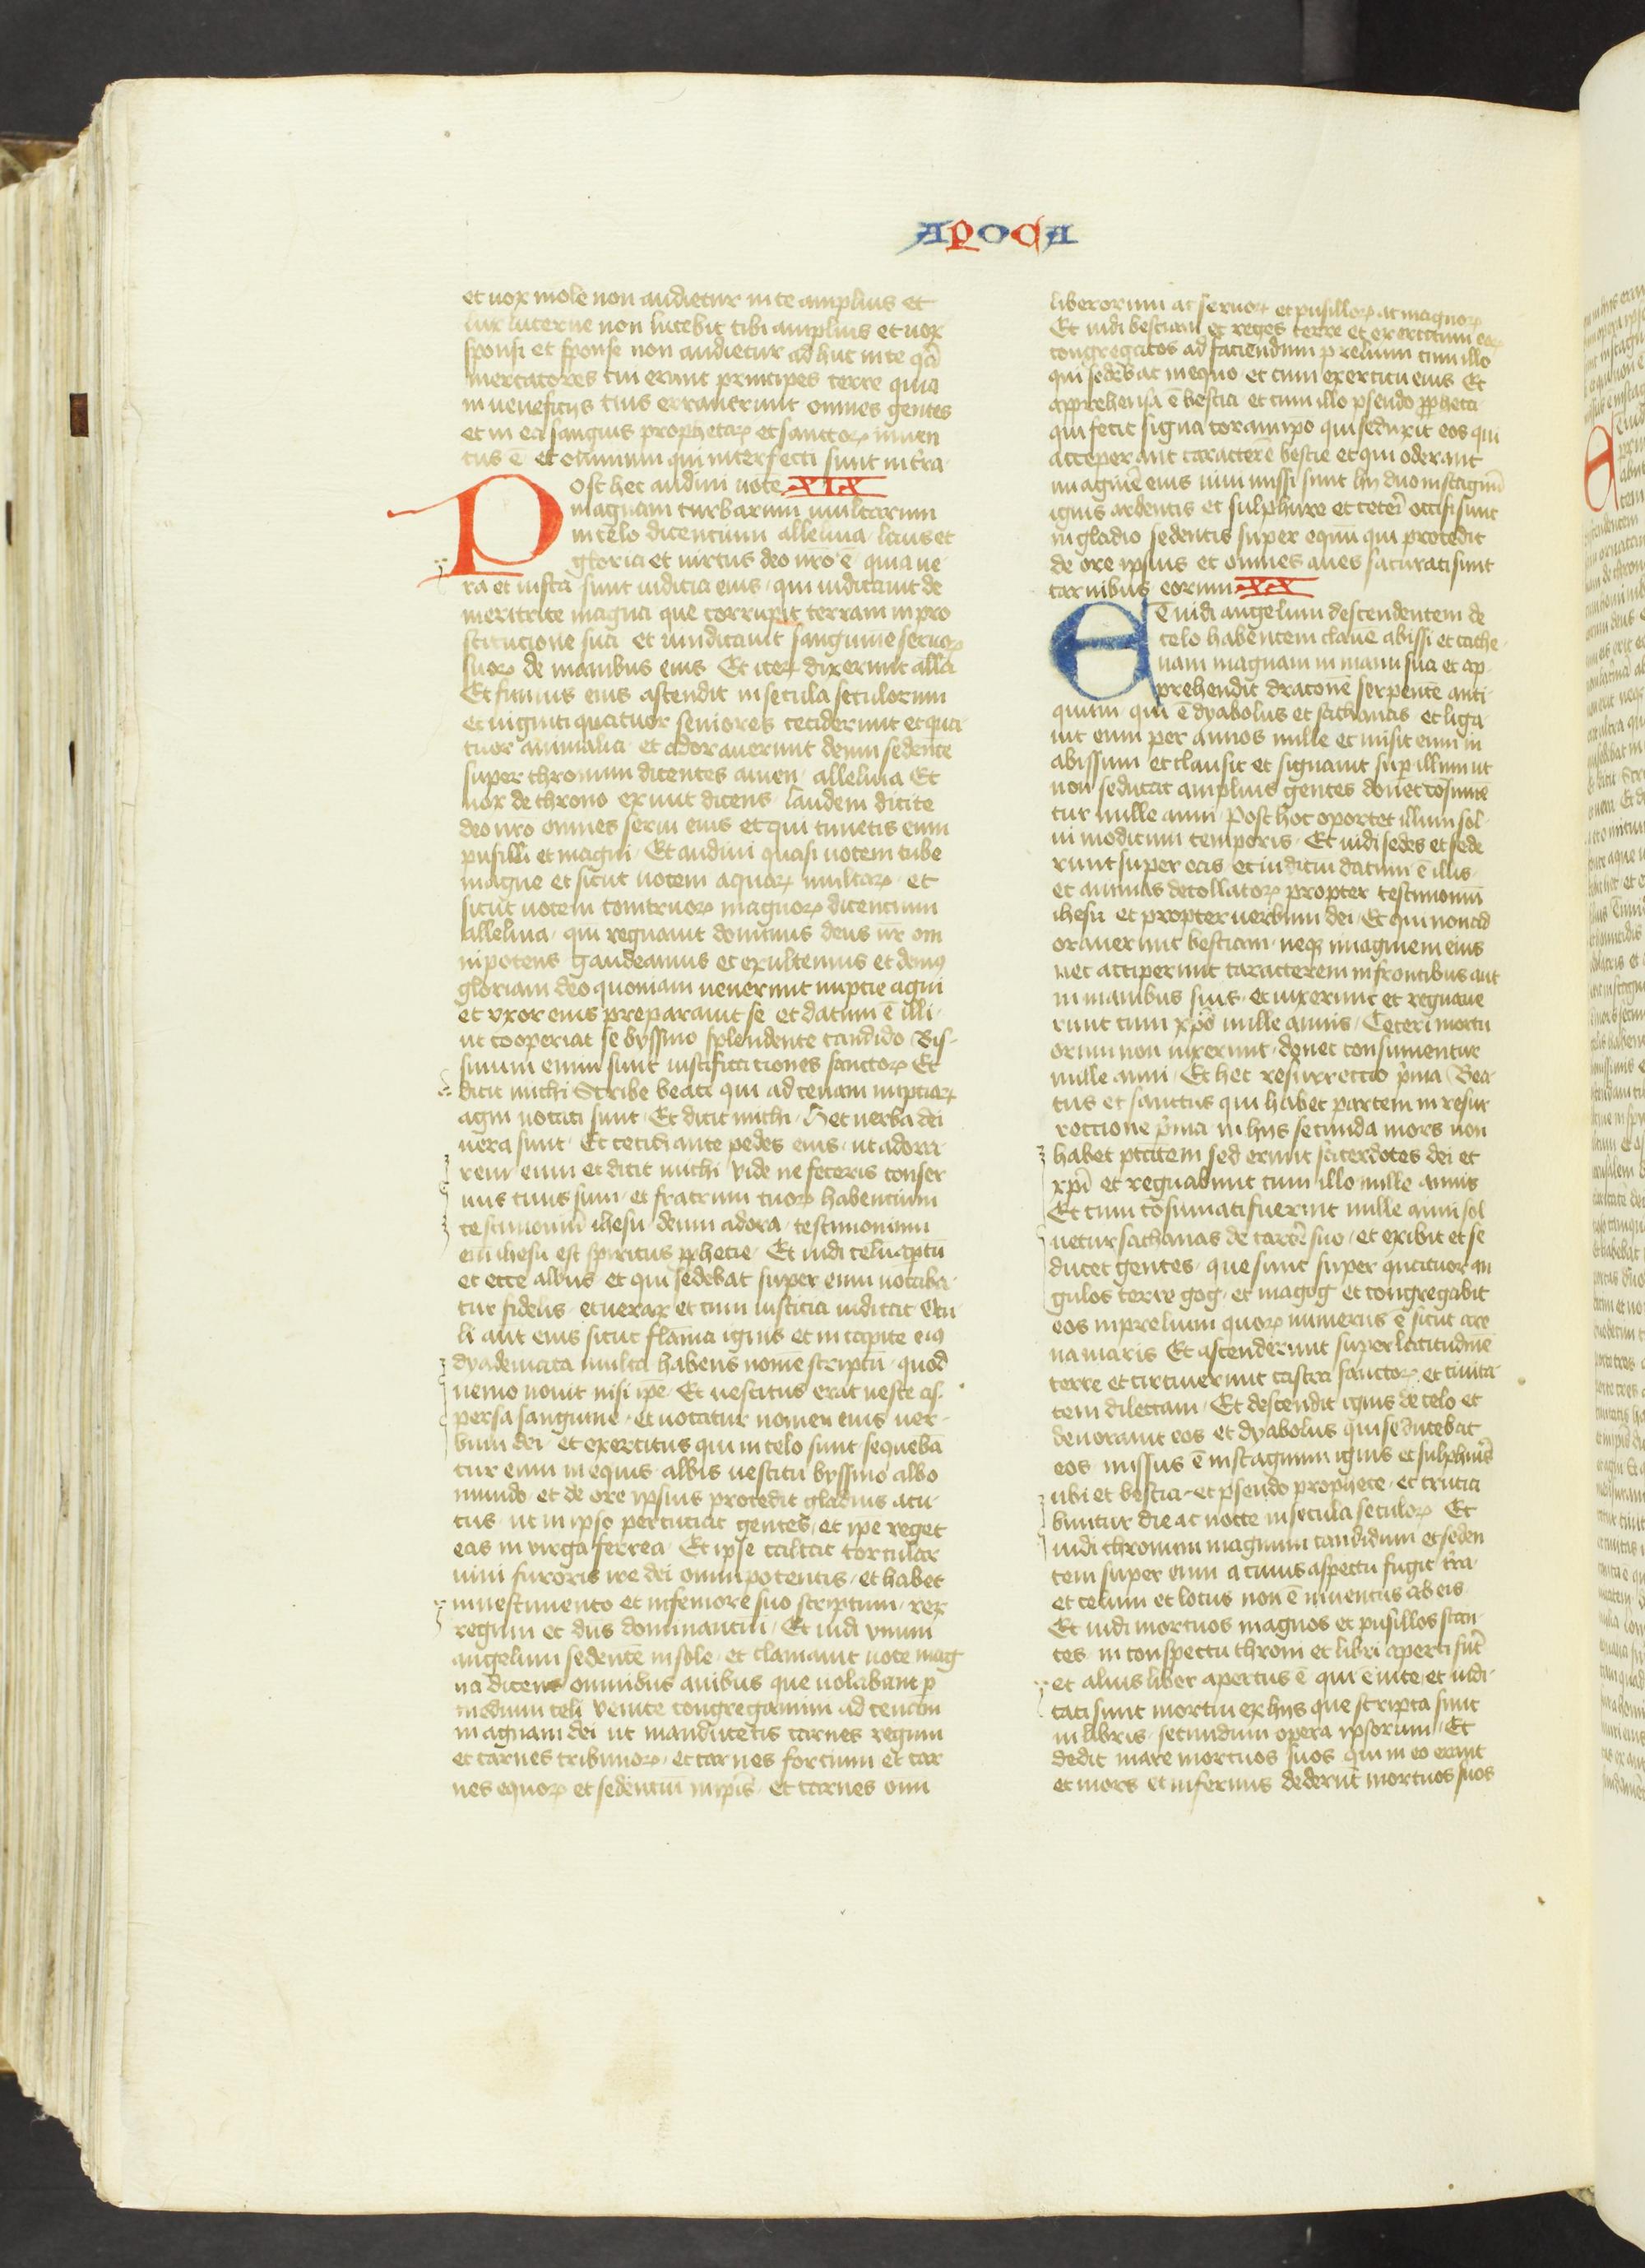 APOCA
et uox mole non audietur in te amplius et
lux lucerne non lucebit tibi amplius et uox
sponsi et sponse non audietur ad huc in te q̄a
mercatores tui erant principes terre quia
in ueneficijs tuis errauerunt omnes gentes
et in ea sanguis prophetaꝝ et sanctoꝝ inuen
tus ē et omnium qui interfecti sunt in t̄ra.
Post hec audiui uocē XIX
magnam turbarum multarum
in celo dicencium alleluia. laus et
gloria et uirtus deo nr̄o ē. quia ue
ra et iusta sunt iudicia eius. qui iudicauit de
meritrite magna que corrupit terram in pro
stitucione sua et uindicauit sanguine seruoꝝ
suoꝝ de manibus eius Et iteꝝ dixerunt alla
Et fumus eius ascendit in secula seculorum
et uiginti quatuor seniores ceciderunt et qua
tuor animalia. et adorauerunt deum sedente
super thronum dicentes amen. alleluia Et
uox de throno exiuit dicens. laudem dicite
deo nr̄o omnes serui eius et qui timetis eum
pusilli et magni. Et audiui quasi uocem tube
magne et sicut uocem aquaꝝ multaꝝ. et
sicut uocem tonitruoꝝ magnoꝝ dicencium
alleluia. qui regnauit dominus deus nr̄ om
nipotens Gaudeamus et exultemus et demꝰ
gloriam deo quoniam uenerunt nuptie agni
et vxor eius preparauit se et datum ē illi.
ut cooperiat se byssino splendente candido Bis-
sinum enim sunt iustificationes sanctoꝝ Et
dicit michi Scribe beati qui ad cenam nuptiaꝝ
agni uocati sunt. Et dicit michi. Hec uerba dei
uera sunt. Et cecidi ante pedes eius. ut adora
rem eum et dicit michi vide ne feceris conser
uus tuus sum. et fratrum tuoꝝ habencium
testimoniū ihesu deum adora. testimonium
eni ihesu est spiritus ꝓphetie. Et uidi celū aptū
et ecce albus et qui sedebat super eum uocaba.
tur fidelis. et uerax et cum iusticia iudicat Ocu
li aut eius sicut flāma ignis et in capite eiꝰ
dyademata multa habens nomē scriptū. quod
nemo nouit nisi ip̄e. Et uestitus erat ueste as.
persa sanguine. et uocatur nomen eius uer-
bum dei. et exercitus qui in celo sunt sequebā
tur eum in equis albis uestiti byssino albo
mundo. et de ore ypsius procedit gladius acu
tus. ut in ipso percuciat gentes. et ip̄e reget
eas in virga ferrea. Et ipse calcat torcular
uini furoris ire dei omnipotentis. et habet
in uestimento et in femore suo scriptum. rex
regum et dn̄s dominanciū. Et uidi vnum
angelum sedentē in sole. et clamauit uoce mag
na dicens omnibus auibus que uolabant p
medium celi Venite congregamini ad cenam
magnam dei ut manducetis carnes regum
et carnes tribunoꝝ. et carnes forcium et car
nes equoꝝ et sedenciū in ip̄is. et carnes omi
liberorum ac seruoꝝ et pusilloꝝ ac magnoꝝ
Et uidi bestiam et reges terre et exercitum eoꝝ
congregatos ad faciendum prelium cum illo
qui sedebat in equo. et cum exercitu eius Et
apprehensa ē bestia et cum illo pseudo ꝓpheta.
qui fecit signa coram ip̄o qui seduxit eos qui
acceperant caracterē bestie et qui oderant
imaginē eius uiui missi sunt hij duo in stagnū
ignis ardentis et sulphure et ceteri occisi sunt
in gladio sedentis super equū qui procedit
de ore ypsius et omnes aues saturati sunt
carnibus eorum XX
Et uidi angelum descendentem de
celo habentem claue abissi et cathe-
nam magnam in manu sua et ap-
prehendit draconē serpentē anti-
quum. qui ē dyabolus et sathanas et liga
uit eum per annos mille et misit eum in
abissum et clausit et signauit sup illum ut
non seducat amplius gentes donec cōsume
tur mille anni. Post hoc oportet illum sol-
ui modicum temporis. Et uidi sedes et sede
runt super eas. et iudicium datum ē illis.
et animas decollatoꝝ propter testimoniū
ihesu et propter uerbum dei. Et qui non ad
orauerunt bestiam. neqꝫ imaginem eius
nec acciperunt caracterem in frontibus aut
in manibus suis. et uixerunt et regnaue
runt cum xpō mille annis. Ceteri mortu
orum non uixerunt. donec consumentur
mille anni. Et hec resurrectio p̄ma Bea-
tus et sanctus qui habet partem in resur
reccione p̄ma. in hijs secunda mors non
habet ptātem sed erunt sacerdotes dei et
xpī et regnabunt cum illo mille annis
Et cum cōsumati fuerint mille anni sol
uetur sathanas de carcē suo. et exibit et se
ducet gentes. que sunt super quatuor an
gulos terre gog. et magog et congregabit
eos in prelium quoꝝ numerus ē sicut are
na maris Et ascenderunt super latitudinē
terre et circuierunt castra sanctoꝝ. et ciuita
tem dilectam. Et descendit ignis de celo et
deuorauit eos et dyabolus qui seducebat
eos. missus ē in stagnum ignis et sulphuris
ubi et bestia. et pseudo prophete. et crucia
buntur die ac nocte in secula seculoꝝ Et
uidi thronum magnum candidum et seden
tem super eum a cuius aspectu fugit t̄ra.
et celum et locus non ē inuentus ab eis.
Et uidi mortuos magnos et pusillos stan-
tes in conspectu throni et libri aperti sūt
et alius liber apertus ē qui ē uite. et iudi-
cati sunt mortui ex hijs que scripta sunt
in libris. secundum opera ypsorum. Et
dedit mare mortuos suos qui in eo erant
et mors et infernus dederūt mortuos suos